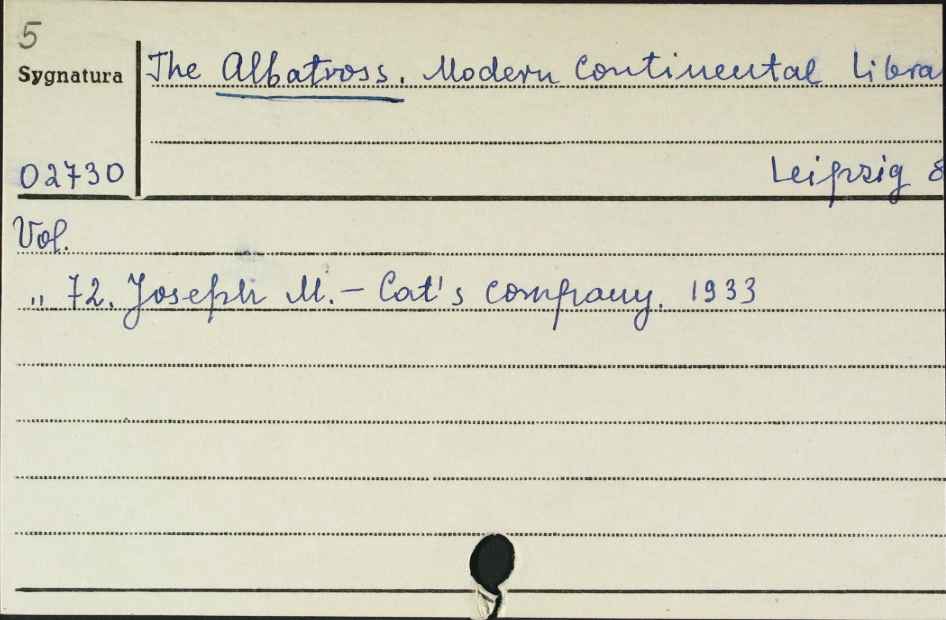 5
Sygnatura
The Albatross. Modern Continental Libra
02730
Leipzig 8
Vol.
„ 72. Joseph M. – Cat's company. 1933